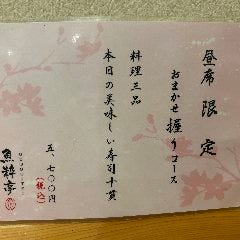 昼席限定
おまかせ握りコース
料理三品
本日の美味しい寿司十貫
五、七〇〇円
(税込)
魚粋亭